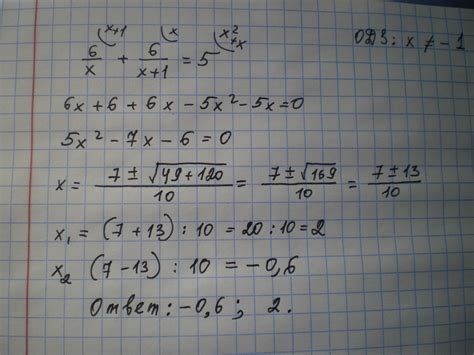 6/x + 6/(x+1) = 5 ОДЗ: x ≠ -1
x+1 x x²+x
6x + 6 + 6x - 5x² - 5x = 0
5x² - 7x - 6 = 0
x = (7 ± √(49 + 120))/10 = (7 ± √169)/10 = (7 ± 13)/10
x₁ = (7 + 13) : 10 = 20 : 10 = 2
x₂ (7 - 13) : 10 = -0,6
Ответ: -0,6 ; 2.